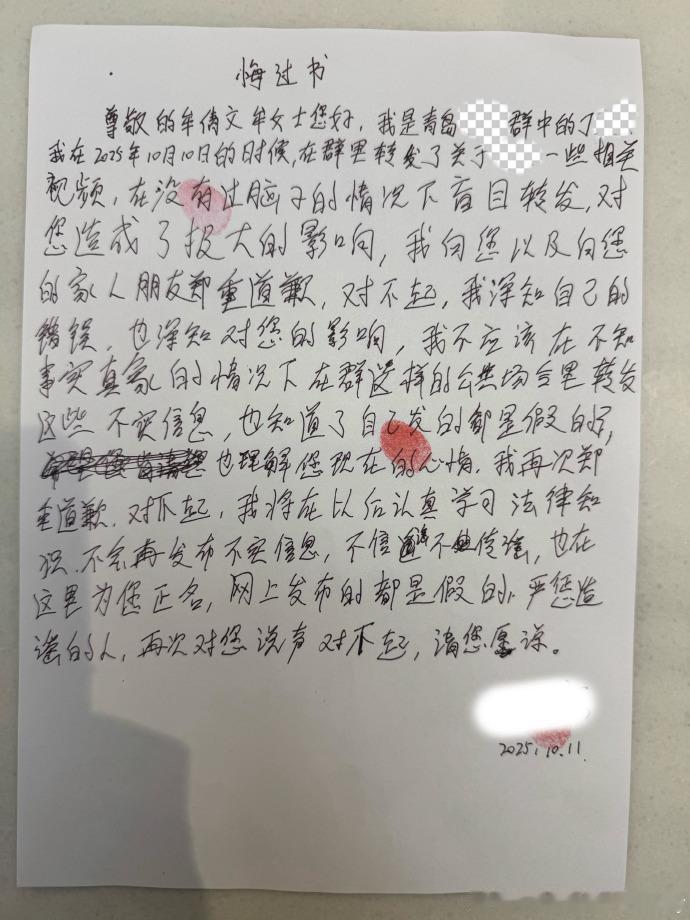 悔过书
尊敬的牟倩文牟女士您好,我是青岛 群中的丁
我在2025年10月10日的时候,在群里转发了关于 一些相关
视频,在没有过脑子的情况下盲目转发,对
您造成了极大的影响,我向您以及向您
的家人朋友郑重道歉,对不起,我深知自己的
错误,也深知对您的影响,我不应该在不知
事实真象的情况下在群这样的公共场合里转发
这些不实信息,也知道了自己发的都是假的,
也理解您现在的心情.我再次郑
重道歉.对不起,我将在以后认真学习法律知
识.不会再发布不实信息,不信谣不传谣,也在
这里为您正名,网上发布的都是假的,严惩造
谣的人,再次对您说声对不起,请您原谅。
2025.10.11